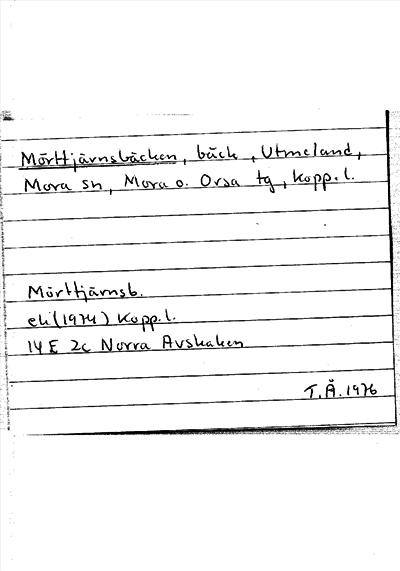 Mörttjärnsbäcken, bäck, Utmeland,
Mora sn, Mora o. Orsa tg, Kopp.l.
Mörttjärnsb.
ek (1974) Kopp.l.
14 E 2c Norra Avskaken
T.Å. 1976